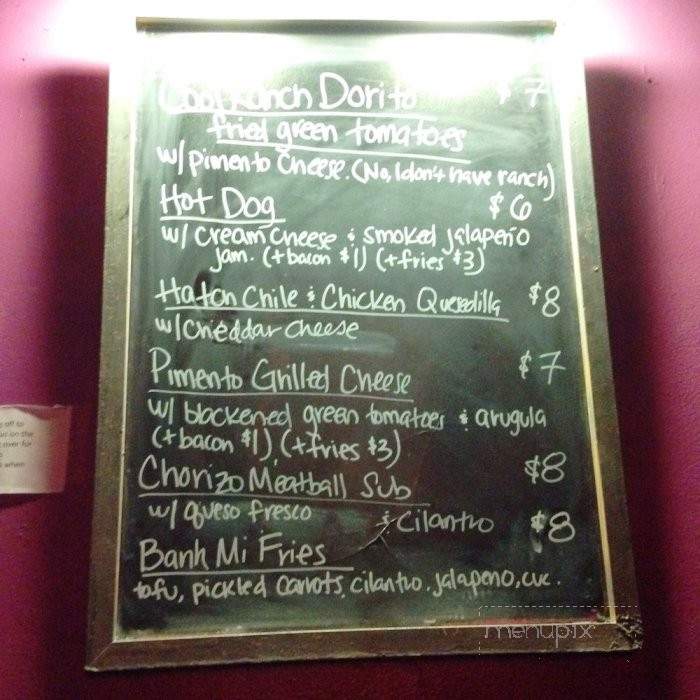 Cool Ranch Dorito $7
fried green tomatoes
w/ pimento cheese. (No, I don't have ranch)
Hot Dog $6
w/ cream cheese & smoked jalapeño
jam. (+bacon $1) (+fries $3)
Hatch Chile & Chicken Quesadilla $8
w/ cheddar cheese
Pimento Grilled Cheese $7
w/ blackened green tomatoes & arugula
(+bacon $1) (+fries $3)
Chorizo Meatball Sub $8
w/ queso fresco & cilantro $8
Banh Mi Fries
tofu, pickled carrots, cilantro, jalapeno, cuc.
menupix